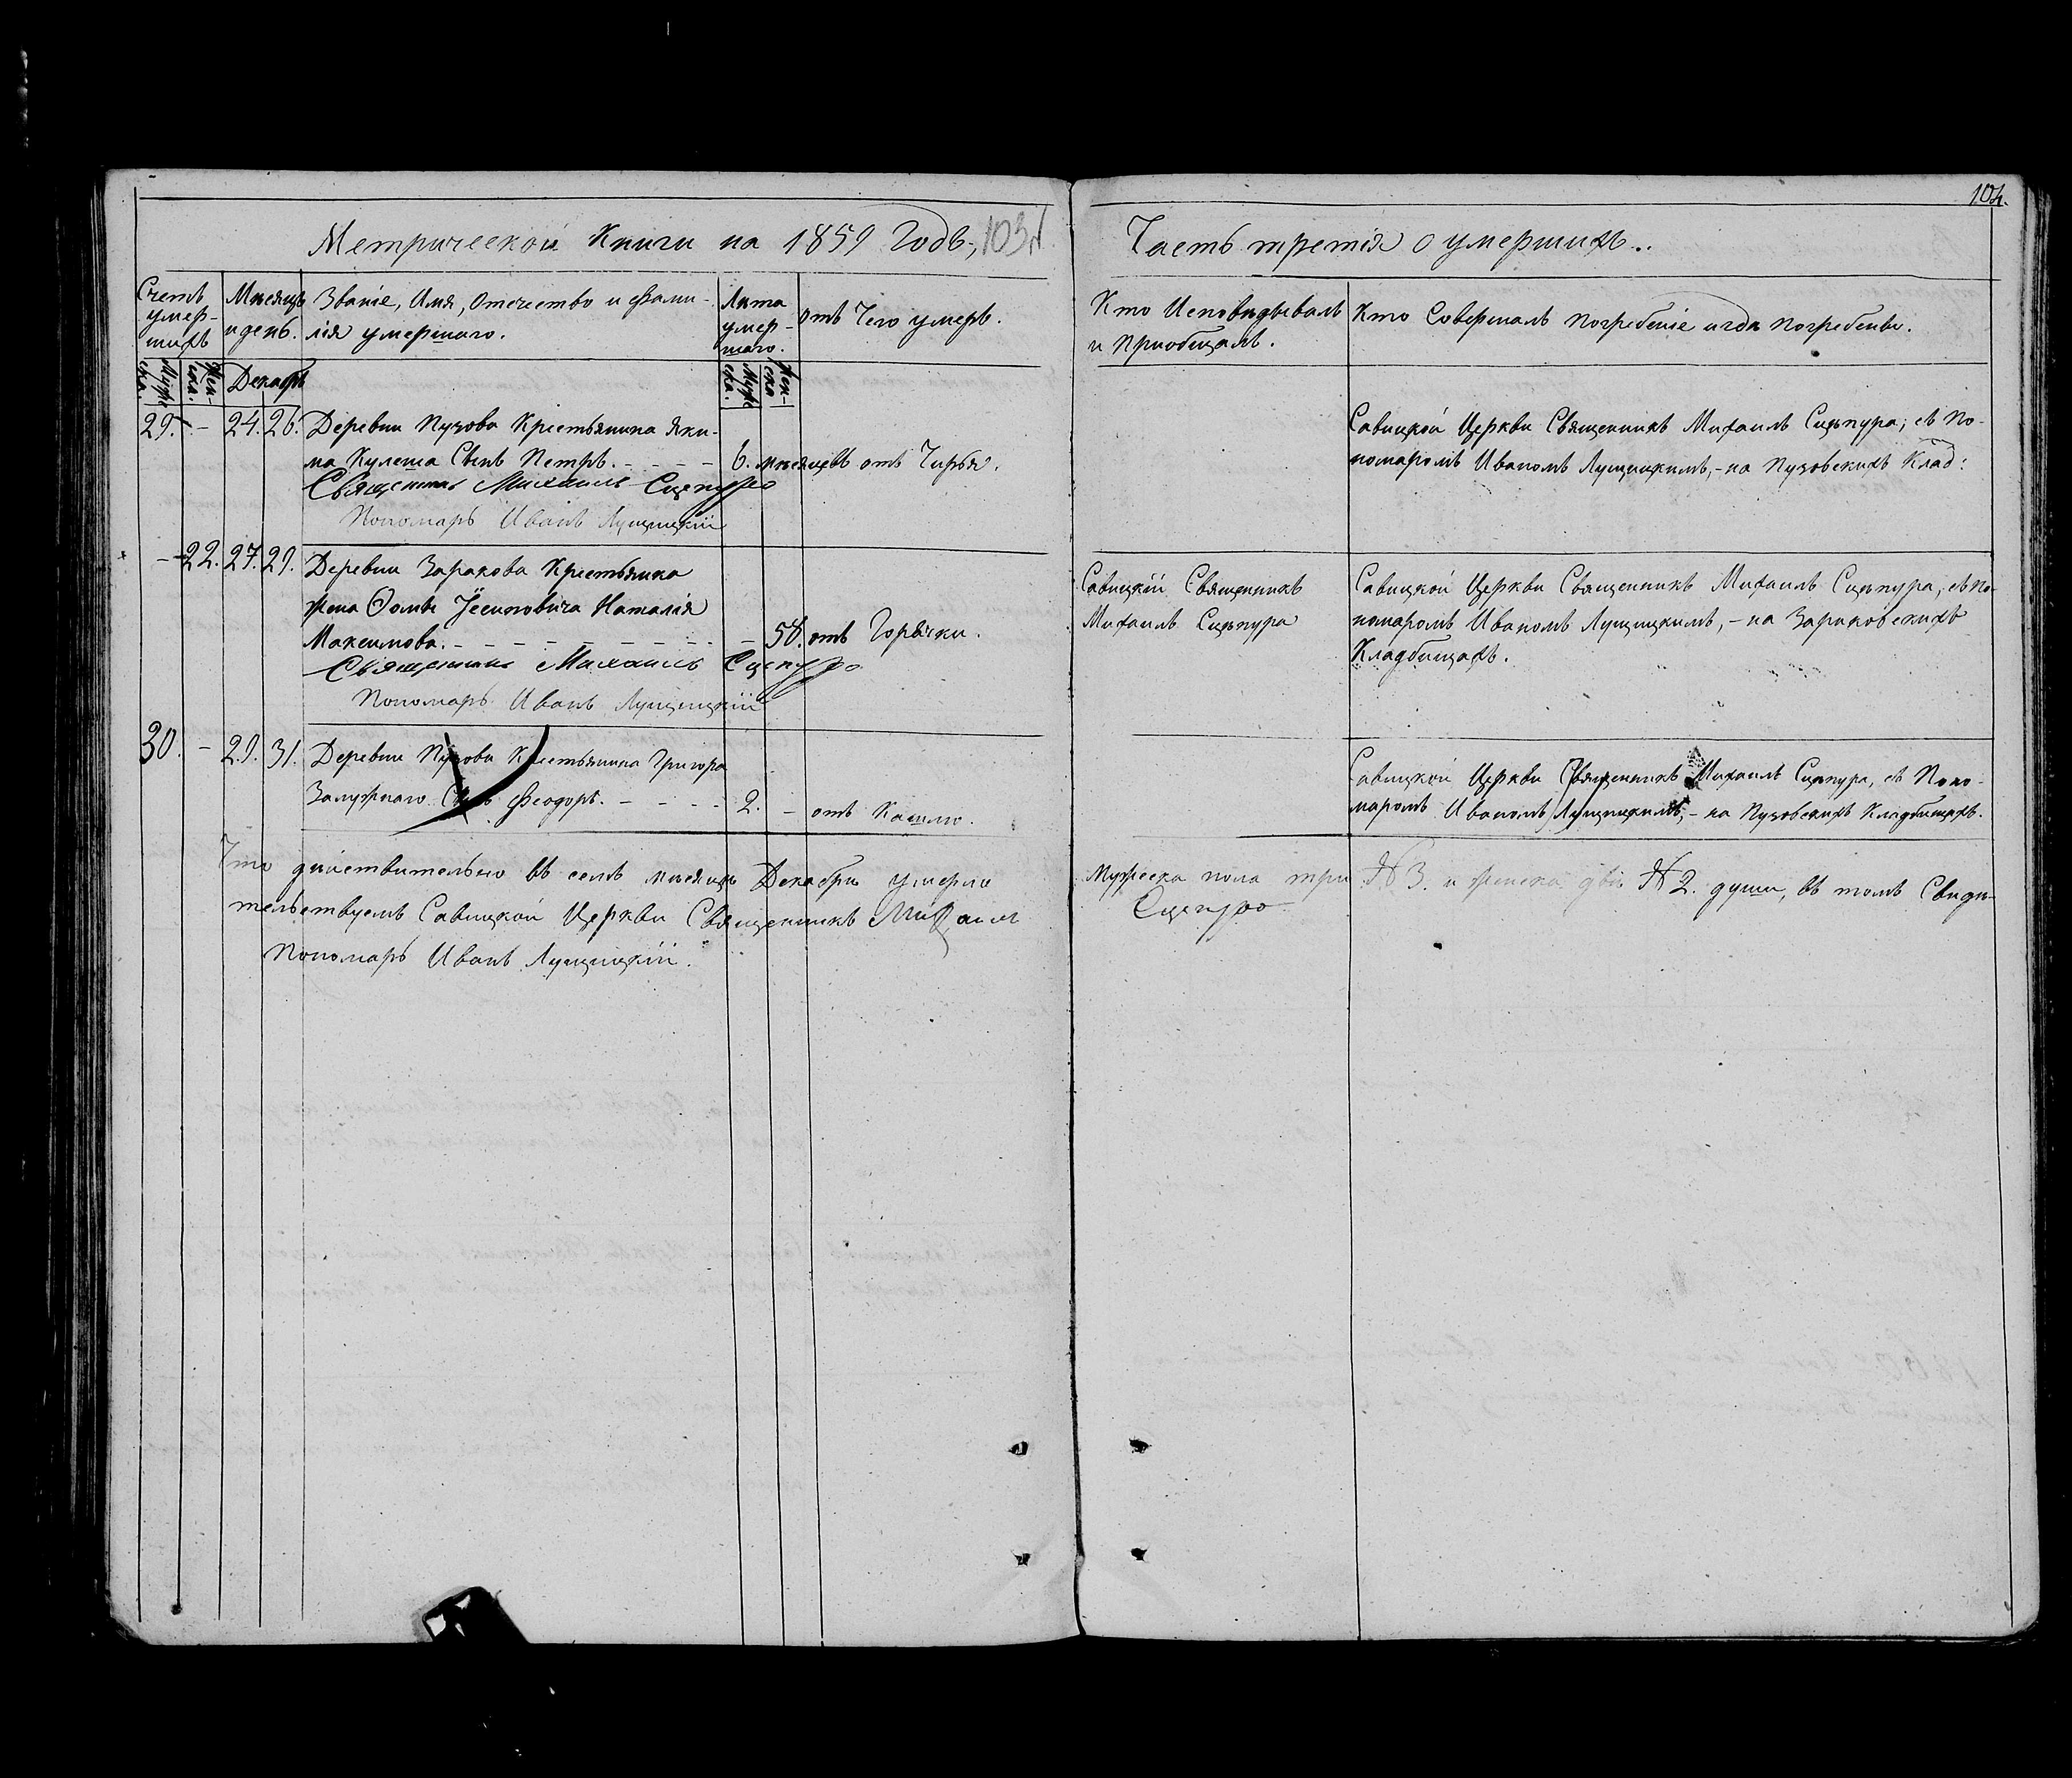 Метрической Книги на 1859 Годъ,
Часть третія о умершихъ..
104.
Счетъ умер-шихъ
Мѣсяцъ и день.
Званіе, Имя, Отечество и Фами-
лія умершаго.
Лѣта умер-шаго.
отъ Чего умеръ.
Кто Исповѣдывалъ
и Пріобщалъ.
Кто Совершалъ Погребеніе и гдѣ Погребены.
Муже ска.
Жен-ска.
Декабрь
Муже ска.
Жен-ска
29. – 24. 26. Деревни Пузова Крестьянина Яки-
ма Кулеша Сынъ Петръ. – – – – 6. мѣсяцевъ отъ Чирья.
Священникъ Михаилъ Сцепуро
Пономарь Иванъ Лущицкій
Савицкой Церкви Священникъ Михаилъ Сцѣпура, съ По-
номаромъ Иваномъ Лущицкимъ, – на Пузовскихъ Клад:
– 22. 27. 29. Деревни Заракова Крестьянка
жена Ѳомы Іосиповича Наталія
Максимова. – – – – – – – – 58. отъ Горячки.
Священникъ Михаилъ Сцепуро
Пономарь Иванъ Лущицкій
Савицкій Священникъ
Михаилъ Сцѣпура
Савицкой Церкви Священникъ Михаилъ Сцѣпура, съ По-
номаромъ Иваномъ Лущицкимъ, – на Зараковскихъ
Кладбищахъ.
30. – 29. 31. Деревни Пузова Крестьянина Григора
Залужнаго Сынъ Феодоръ. – – – – 2. – отъ Кашлю.
Савицкой Церкви Священникъ Михаилъ Сцѣпура, съ Поно-
маромъ Иваномъ Лущицкимъ, – на Пузовскихъ Кладбищахъ.
Что дѣйствительно въ семъ мѣсяцѣ Декабрѣ умерло Мужеска пола три № 3. и женска двѣ № 2. души, въ томъ Свидѣ-
тельствуемъ Савицкой Церкви Священникъ Михаилъ Сцепуро
Пономарь Иванъ Лущицкій.